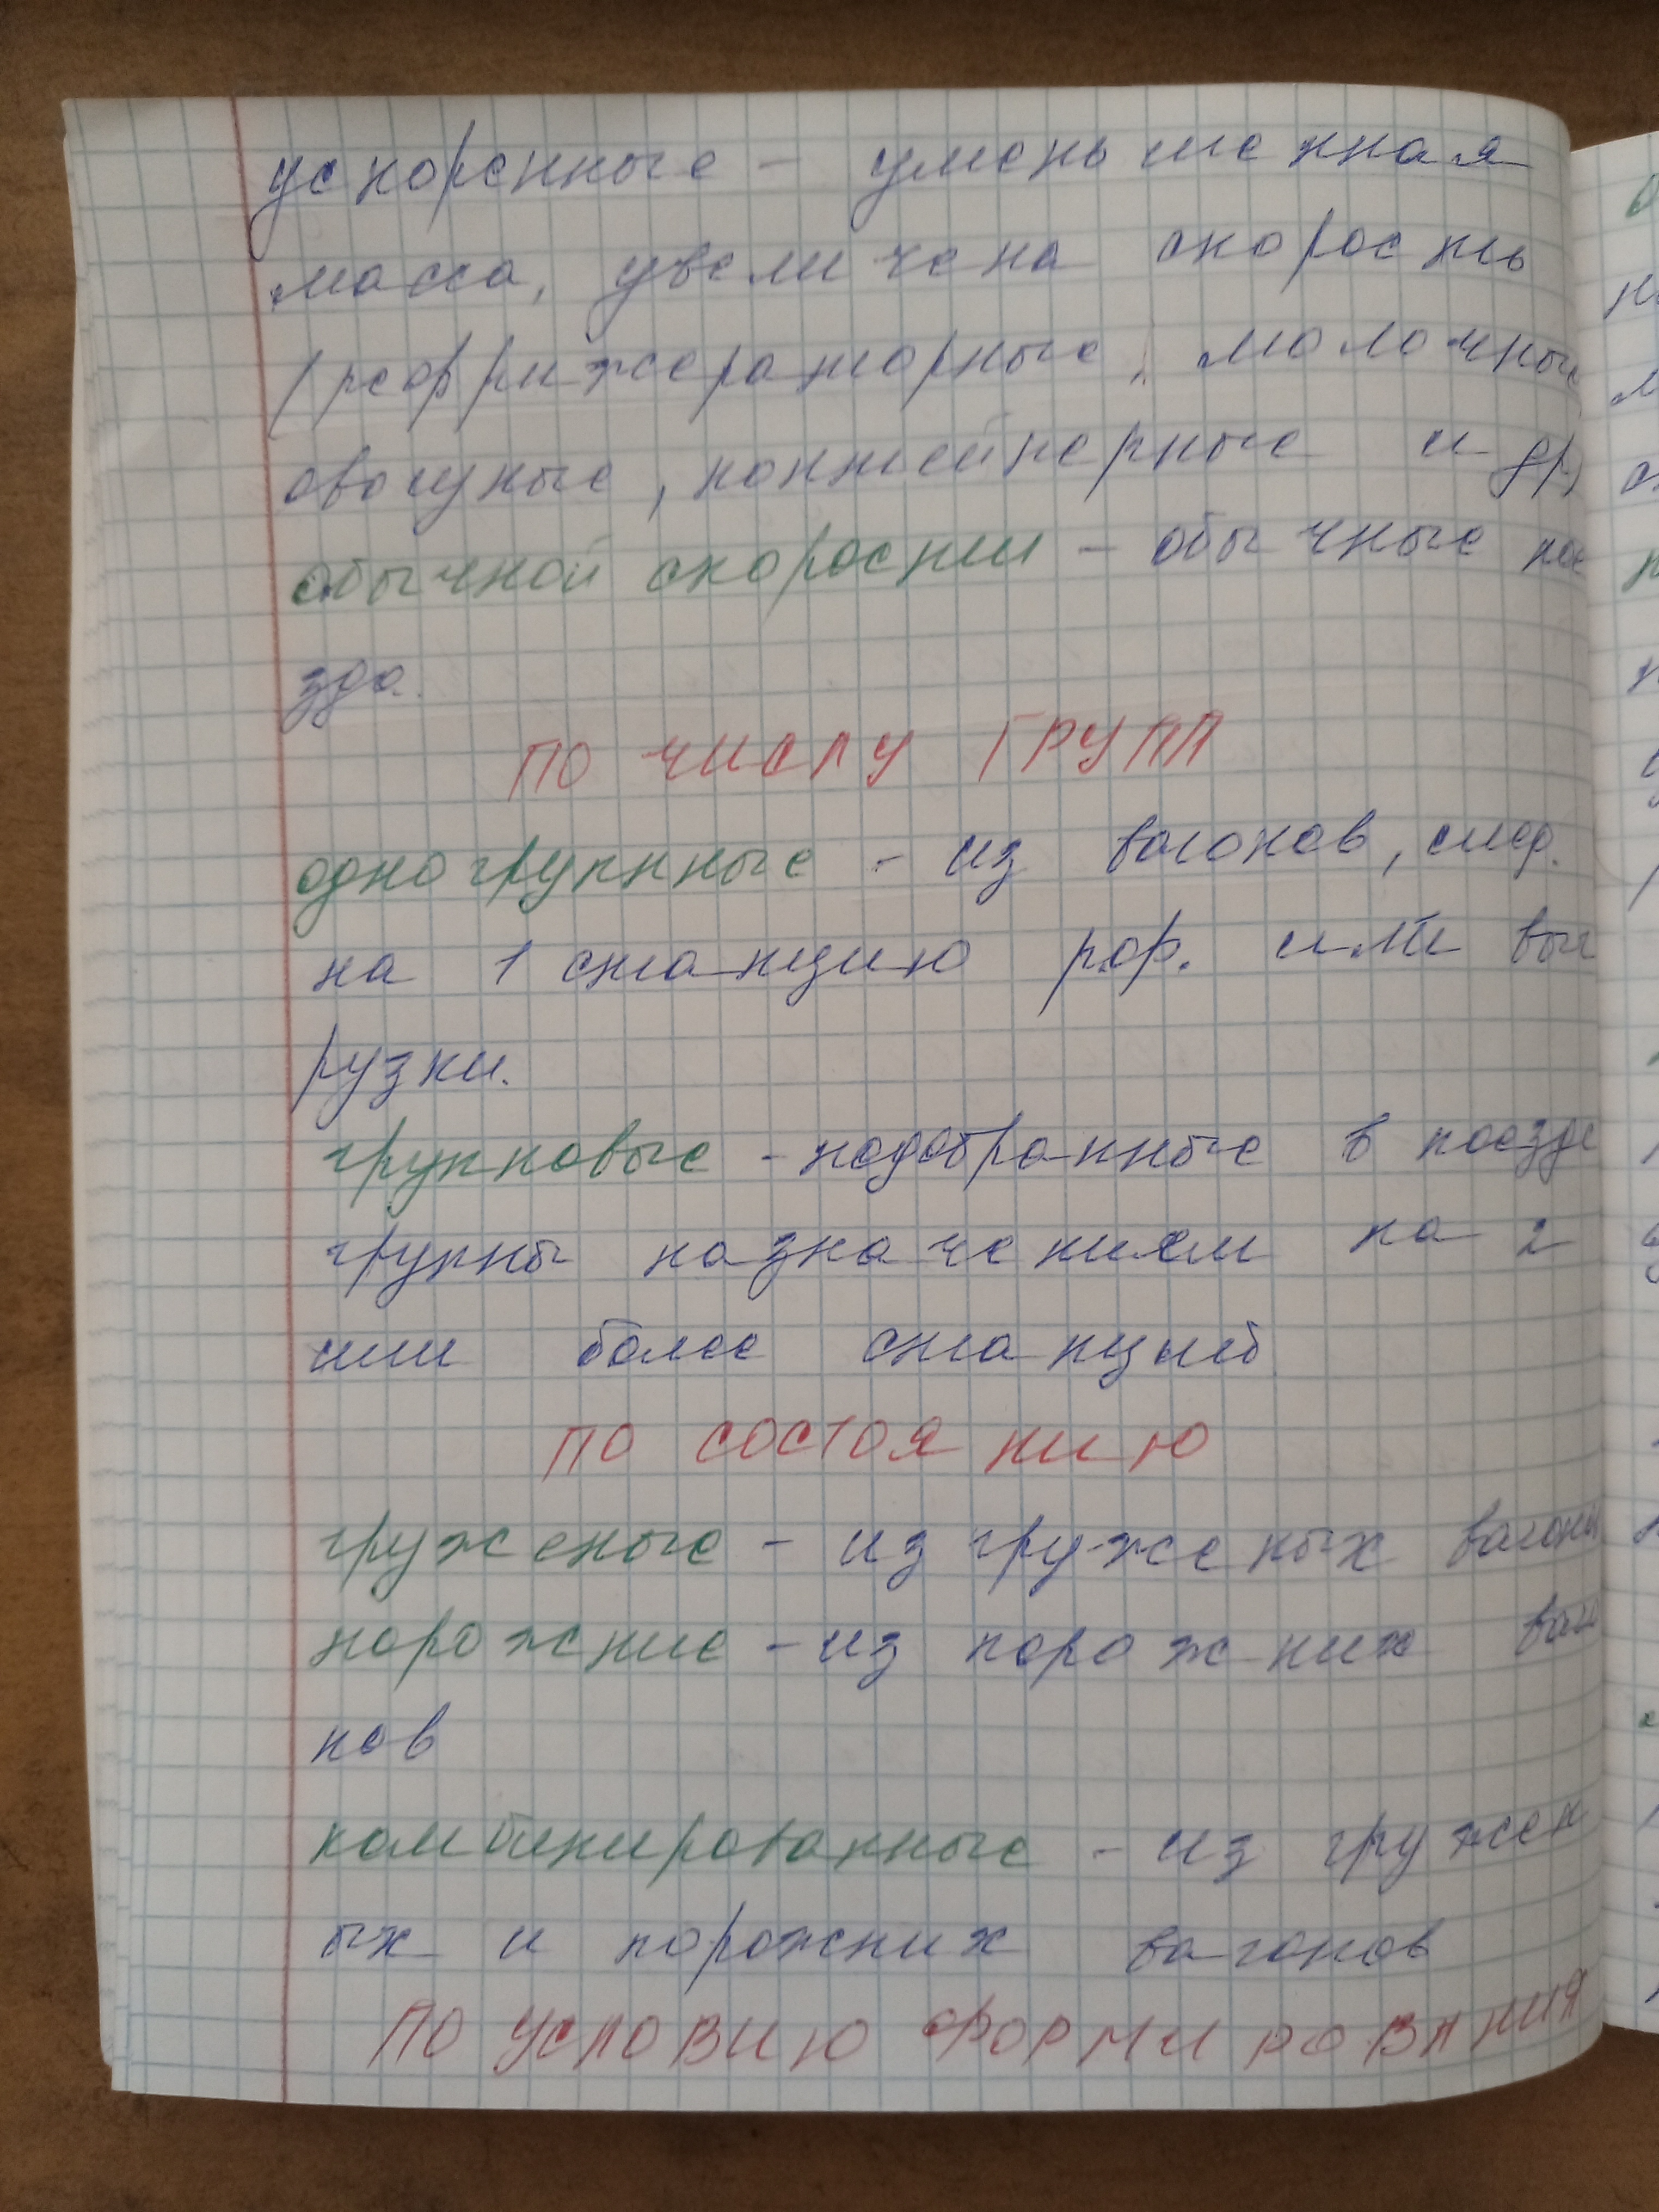 ускоренные - уменьшенная
масса, увеличена скорость
(рефрижераторные, молочные
овощные, контейнерные и др)
обычной скорости - обычные пое
зда.
ПО ЧИСЛУ ГРУПП
одногруппные - из вагонов, след.
на 1 станцию рф. или выг
рузки.
групповые - подобранные в поезде
группы назначением на 2
или более станций
ПО СОСТОЯНИЮ
груженые - из груженых вагоны
порожние - из порожних ваго
нов
комбинированные - из гружен
ых и порожних вагонов
ПО УСЛОВИЮ ФОРМИРОВАНИЯ